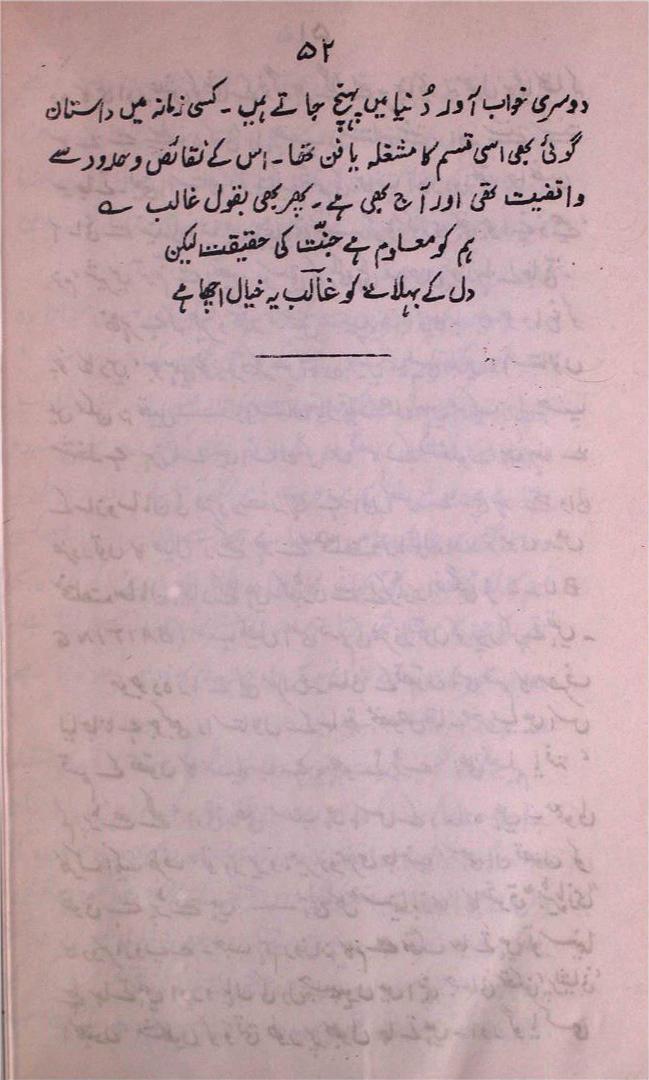 ۵۲
دوسری خواب آور دُنیا میں پہنچ جاتے ہیں۔ کسی زمانہ میں داستان
گوئی بھی اسی قسم کا مشغلہ یا فن تھا۔ اس کے نقائص و حدود سے
واقفیت تھی اور آج بھی ہے۔ پھر بھی بقول غالب ؎
ہم کو معلوم ہے جنّت کی حقیقت لیکن
دل کے بہلانے کو غالبؔ یہ خیال اچھا ہے